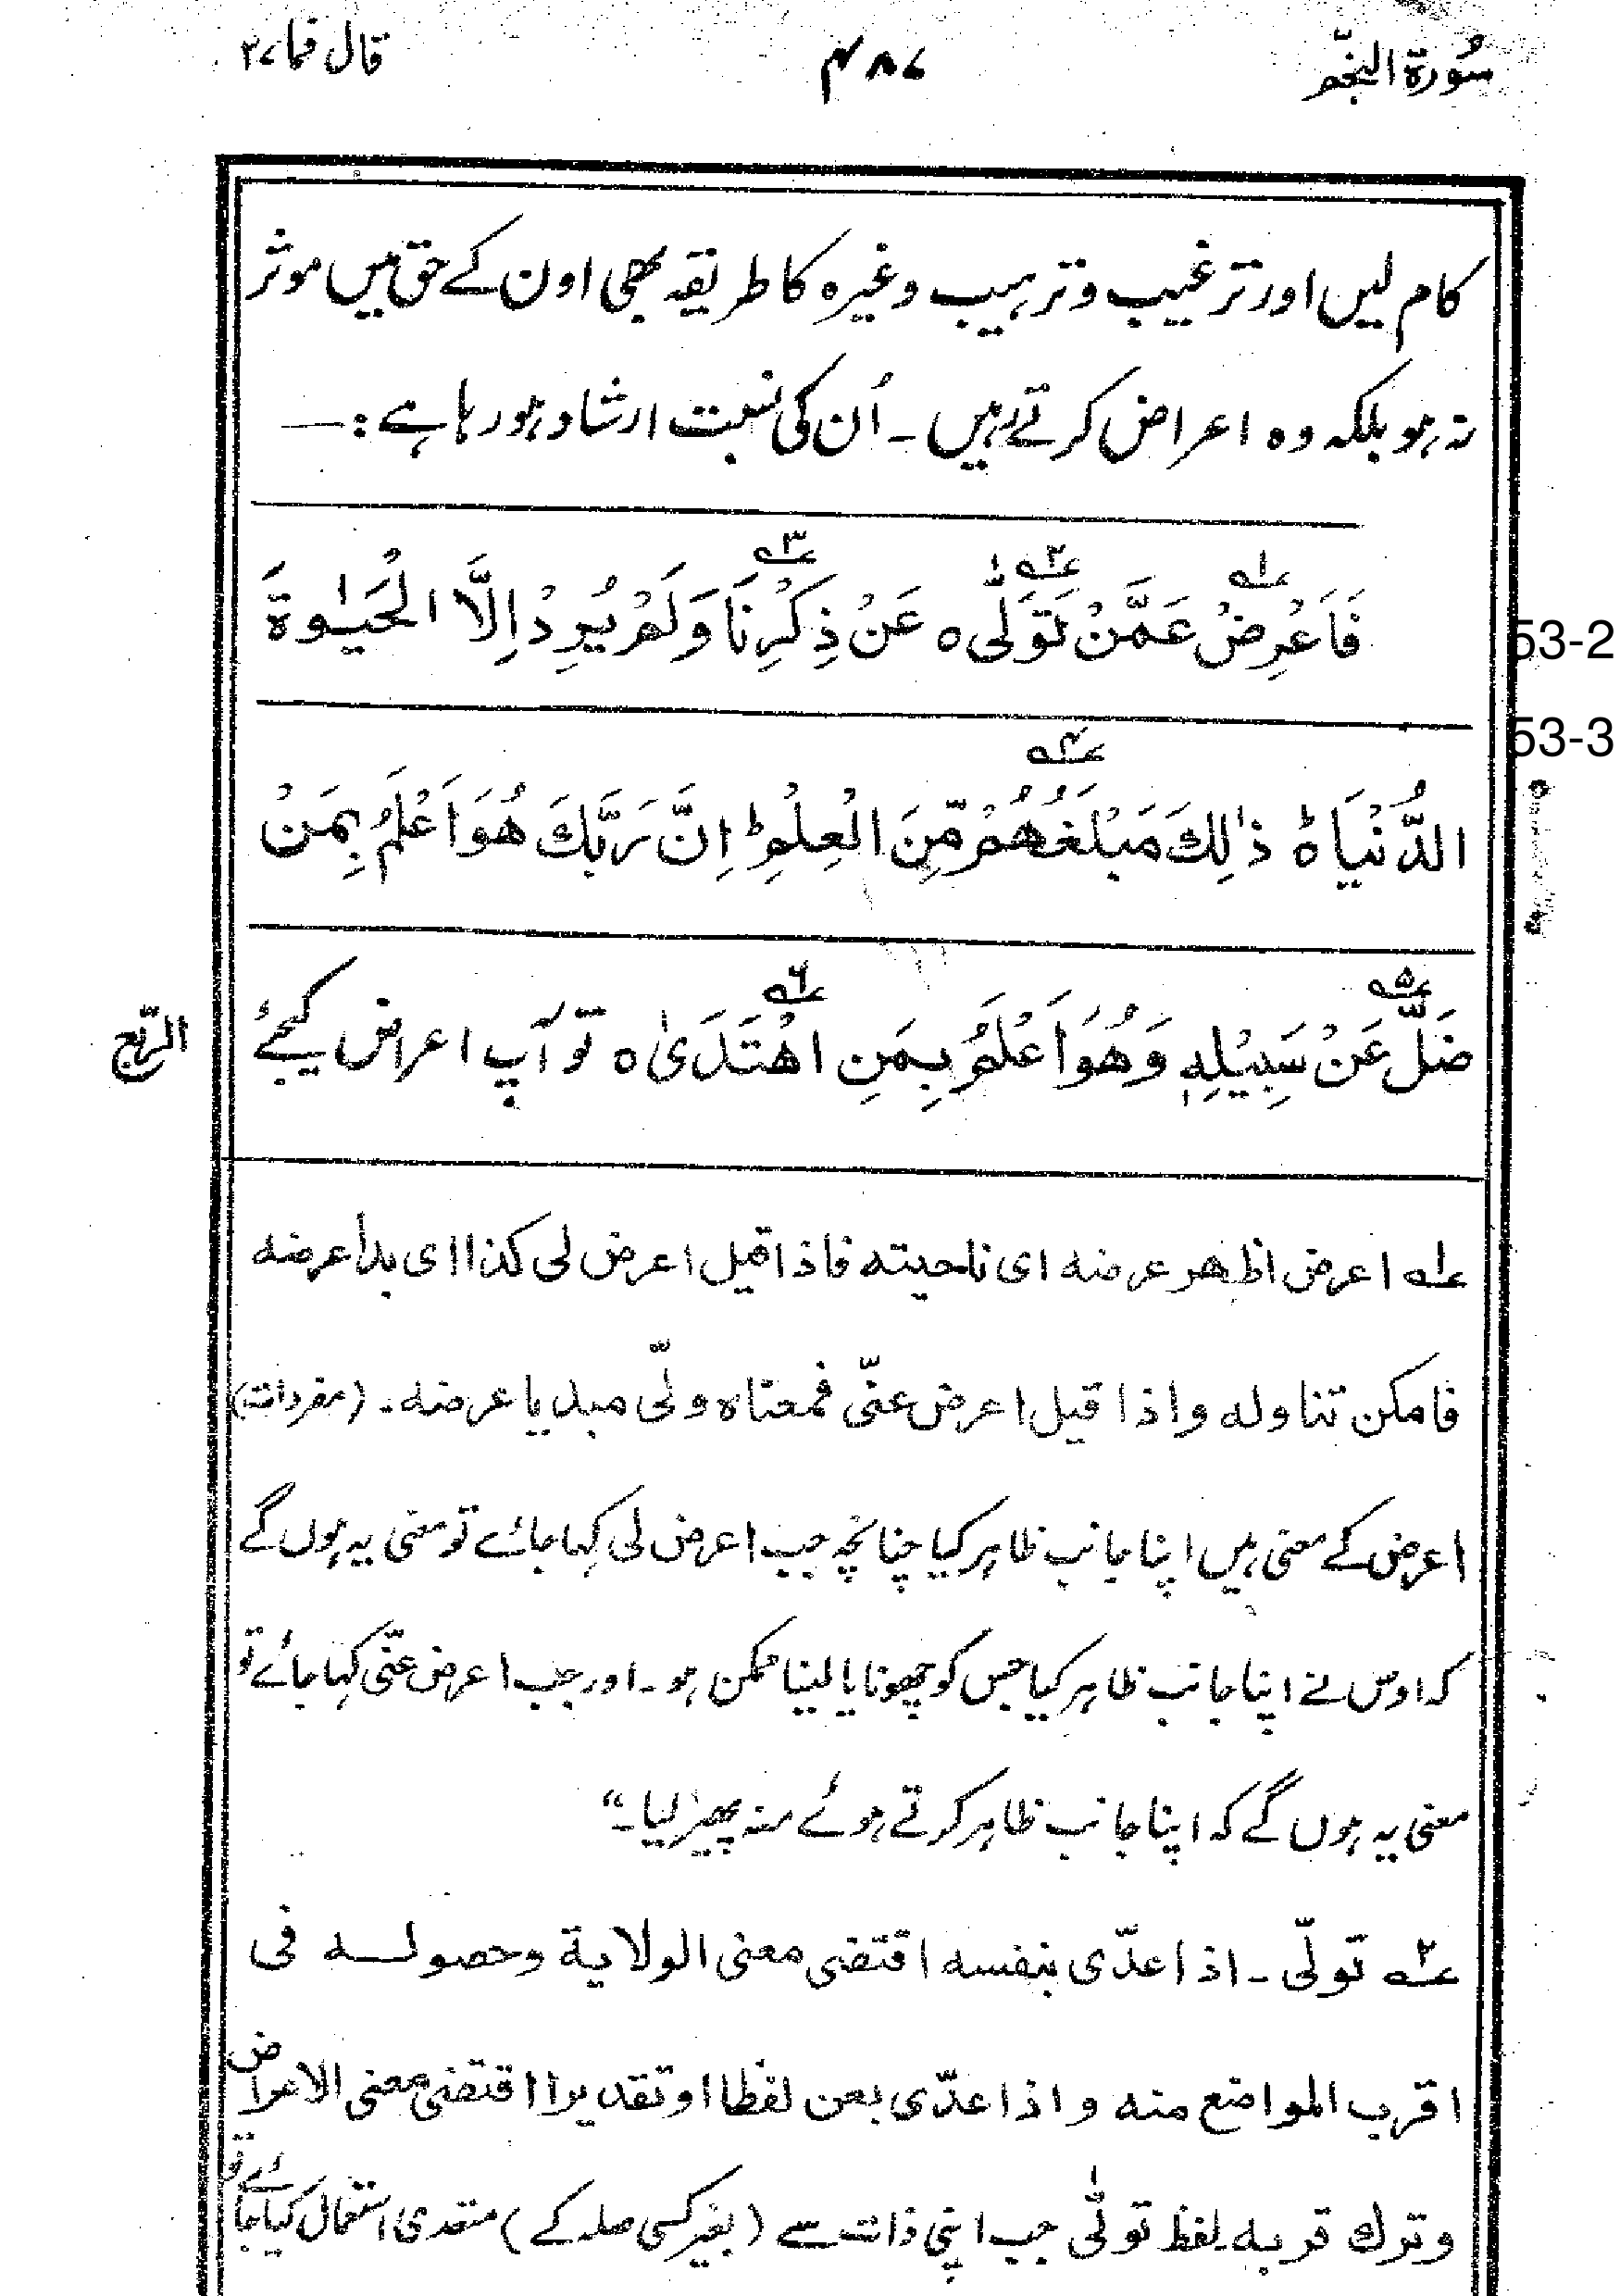 سُورۃ النجّم
۴۸۷
قال فما ۲۷
کام لیں اور ترغیب و ترہیب وغیرہ کا طریقہ بھی اون کے حق میں موثر
نہ ہو بلکہ وہ اعراض کرتے رہیں ۔ اُن کی نسبت ارشاد ہو رہا ہے :—
فَاَعْرِضْ عَمَّنْ تَوَلّٰى ہ عَنْ ذِكْرِنَا وَلَمْ يُرِدْ اِلَّا الْحَيٰوةَ
53-2
53-3
الدُّنْيَا ہؕ ذٰلِكَ مَبْلَغُهُمْ مِّنَ الْعِلْمِؕ اِنَّ رَبَّكَ هُوَ اَعْلَمُ بِمَنْ
ضَلَّ عَنْ سَبِيْلِهٖ وَهُوَ اَعْلَمُ بِمَنِ اهْتَدَىٰ ہ تو آپ اعراض کیجئے
الرّبع
؂۱ اعرض اظهر عرضه ای ناحیته فاذا قیل اعرض لی کذا ای بدا عرضه
فامکن تناوله واذا قیل اعرض عنّی فمعناه ولّی مبدیا عرضه ۔ (مفردات)
اعرض کے معنی ہیں اپنا جانب ظاہر کیا چنانچہ جب اعرض لی کہا جائے تو معنی یہ ہوں گے
کہ اوس نے اپنا جانب ظاہر کیا جس کو چھونا یا لینا ممکن ہو ۔ اور جب اعرض عنّی کہا جائے تو
معنی یہ ہوں گے کہ اپنا جانب ظاہر کرتے ہوئے منہ پھیر لیا ۔“
؂۲ تولّی ۔ اذا عدّی بنفسه اقتضی معنی الولایة وحصوله فی
اقرب المواضع منه واذا عدّی بعن لفظا او تقدیرا اقتضی معنی الاعراض
وترك قربه ۔ لفظ تولّٰی جب اپنی ذات سے (بغیر کسی صلہ کے) متعدی استعمال کیا جائے تو